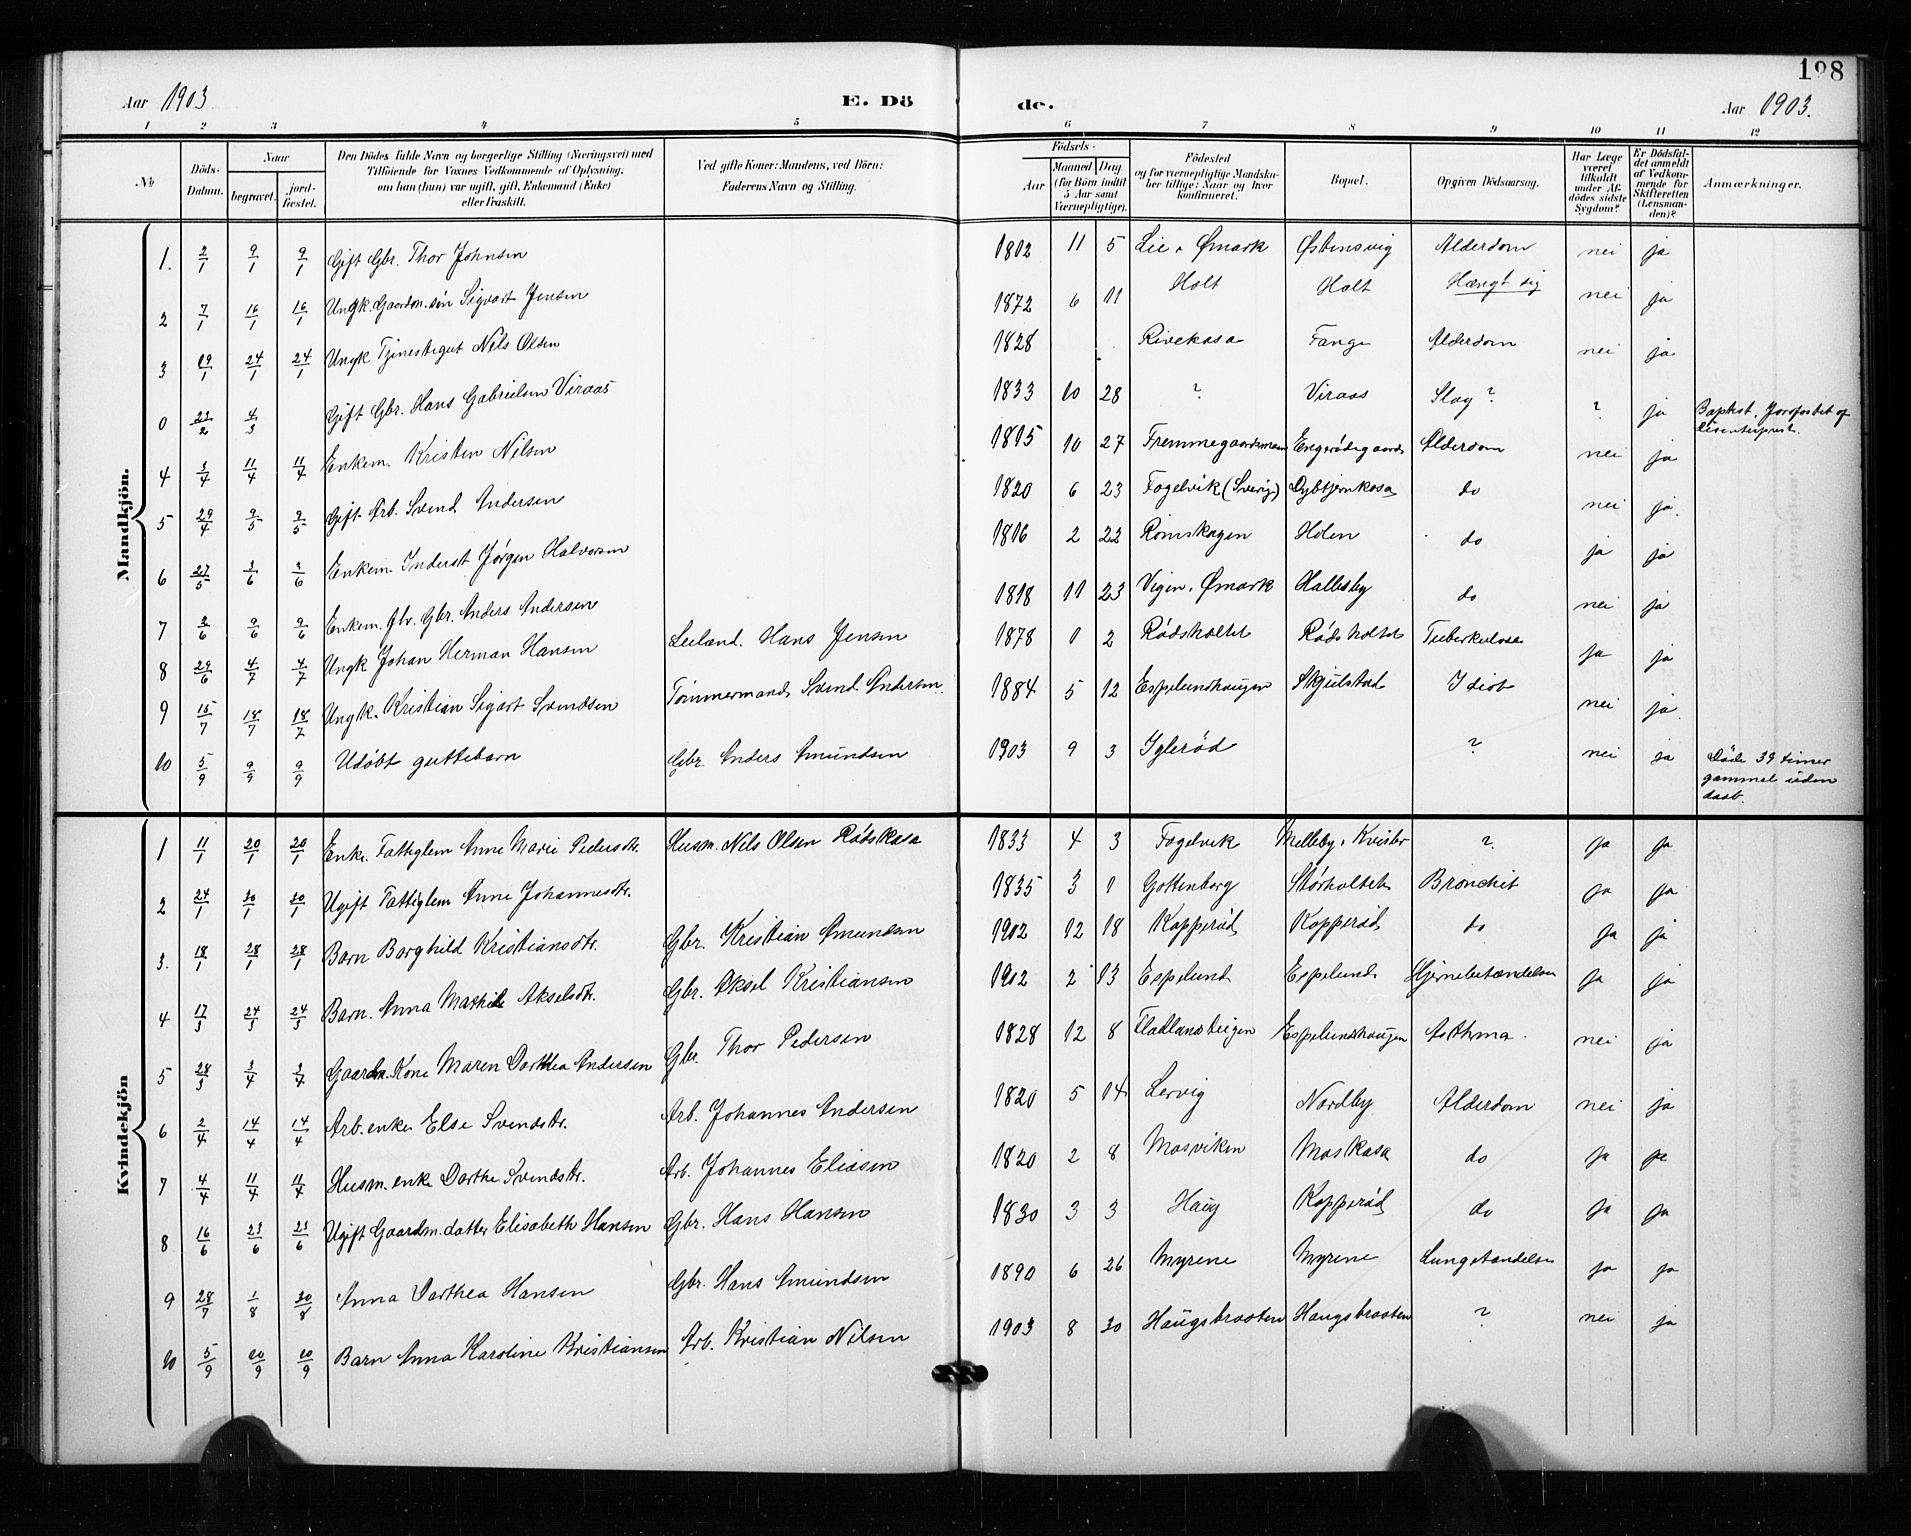 198
Aar 1903 E. Dö de. Aar 1903.
1 2 3 4 5 6 7 8 9 10 11 12
No
Döds-Datum.
Naar begravet. jord-fæstet.
Den Dödes fulde Navn og borgerlige Stilling (Næringsvei) med Tilföiende for Voxnes Vedkommende af Oplysning, om han (hun) var ugift, gift, Enkemand (Enke) eller fraskilt.
Ved gifte Koner: Mandens, ved Börn: Faderens Navn og Stilling.
Födsels- Aar Maaned Dag (for Börn indtil 5 Aar samt Værnepligtige).
Födested og for værnepligtige Mandskaber tillige: Naar og hvor konfirmeret.
Bopæl.
Opgiven Dödsaarsag.
Har Læge været tilkaldt under Afdödes sidste Sygdom?
Er Dödsfaldet anmeldt af Vedkommende for Skifteretten (Lensmanden)?
Anmærkninger.
Mandkjön.
1. 2/1 9/1 9/1 Gift Gbr. Thor Johnsen 1812 11 5 Lie i Ømark Østensvig Alderdom nei ja
2 7/1 16/1 16/1 Ungk. Gaardm. søn Sigvart Jensen 1872 6 11 Holt Holt Hængt sig nei ja
3 19/1 24/1 24/1 Ungk Tjenestegut Nils Olsen 1828 Rivekasa Tange Alderdom nei ja
0 22/2 4/3 Gift Gbr. Hans Gabrielsen Viraas 1833 10 28 ? Viraas Slag? ? ja Baptist. Jordfæstet af Dissenterprest.
4 3/4 11/4 11/4 Enkem. Kristen Nilsen 1815 10 27 Fremmegaardsmoen Engerødegaard Alderdom nei ja
5 29/4 9/5 9/5 Gift Arb. Svend Andersen 1820 6 23 Fogelvik (Sverige) Dybtjernkasa do nei ja.
6 27/5 3/6 3/6 Enkem. Inderst Jørgen Halvorsen 1816 2 22 Rømskogen Holen do ja ja
7 3/6 9/6 9/6 Enkem. Gbr. Anders Andersen 1818 11 23 Vigen i Ømark Hallesby do nei ja
8 29/6 4/7 4/7 Ungk Johan Herman Hansen Leiland. Hans Jensen 1878 1 2 Rødsholtet Rødsholtet Tuberkulose ja ja
9 15/7 18/7 18/7 Ungk. Kristian Sigart Svendsen Tømmermand Svend Andersen 1884 5 12 Espelundhaugen Skjulstad Idiot nei ja
10 5/9 9/9 9/9 Udøbt guttebarn Gbr. Anders Amundsen 1903 9 3 Iglerød ? nei ja Døde 39 timer gammel uden daab.
Kvindekjön
1 11/1 20/1 20/1 Enke. Fattiglem Anne Marie Pedersdtr. Husm. Nils Olsen Rødskasa 1833 4 3 Fogelvik Melleby i Kvisler ? ja ja
2 24/1 30/1 30/1 Ugift Fattiglem Anne Johannesdtr. 1835 3 1 Gottenborg Størholtet Bronchit ja ja
3. 18/1 28/1 28/1 Barn Borghild Kristiansdtr. Gbr. Kristian Amundsen 1902 12 18 Kopperød Kopperød do ja ja
4 17/3 24/3 24/3 Barn. Anna Mathilde Akselsdtr. Gbr. Aksel Kristiansen 1902 2 13 Espelund Espelund Hjernebetændelse ja ja
5 28/3 3/4 3/4 Gaardm. Kone Maren Dorthea Andersen Gbr. Thor Pedersen 1828 12 8 Fladlandsteigen Espelundhaugen Asthma. nei ja
6 2/4 14/4 14/4 Arb. enke Else Svendsdtr. Arb. Johannes Andersen 1820 5 14 Lervig Nordby Alderdom nei ja
7 4/4 11/4 11/4 Husm. enke Dorthe Svendsdtr. Arb. Johannes Eliasen 1820 2 8 Mosviken Moskasa do ja ja
8 16/6 23/6 23/6 Ugift Gaardm. datter Elisabeth Hansen Gbr. Hans Hansen 1830 3 3 Haug Kopperød do ja ja
9 28/7 1/8 30/8 Anna Dorthea Hansen Gbr. Hans Amundsen 1890 6 26 Myrene Myrene Lungetændelse ja ja
10 5/9 10/9 10/9 Barn Anna Karoline Kristiansen Arb. Kristian Nilsen 1903 8 30 Haugsbraaten Haugsbraaten ? nei ja